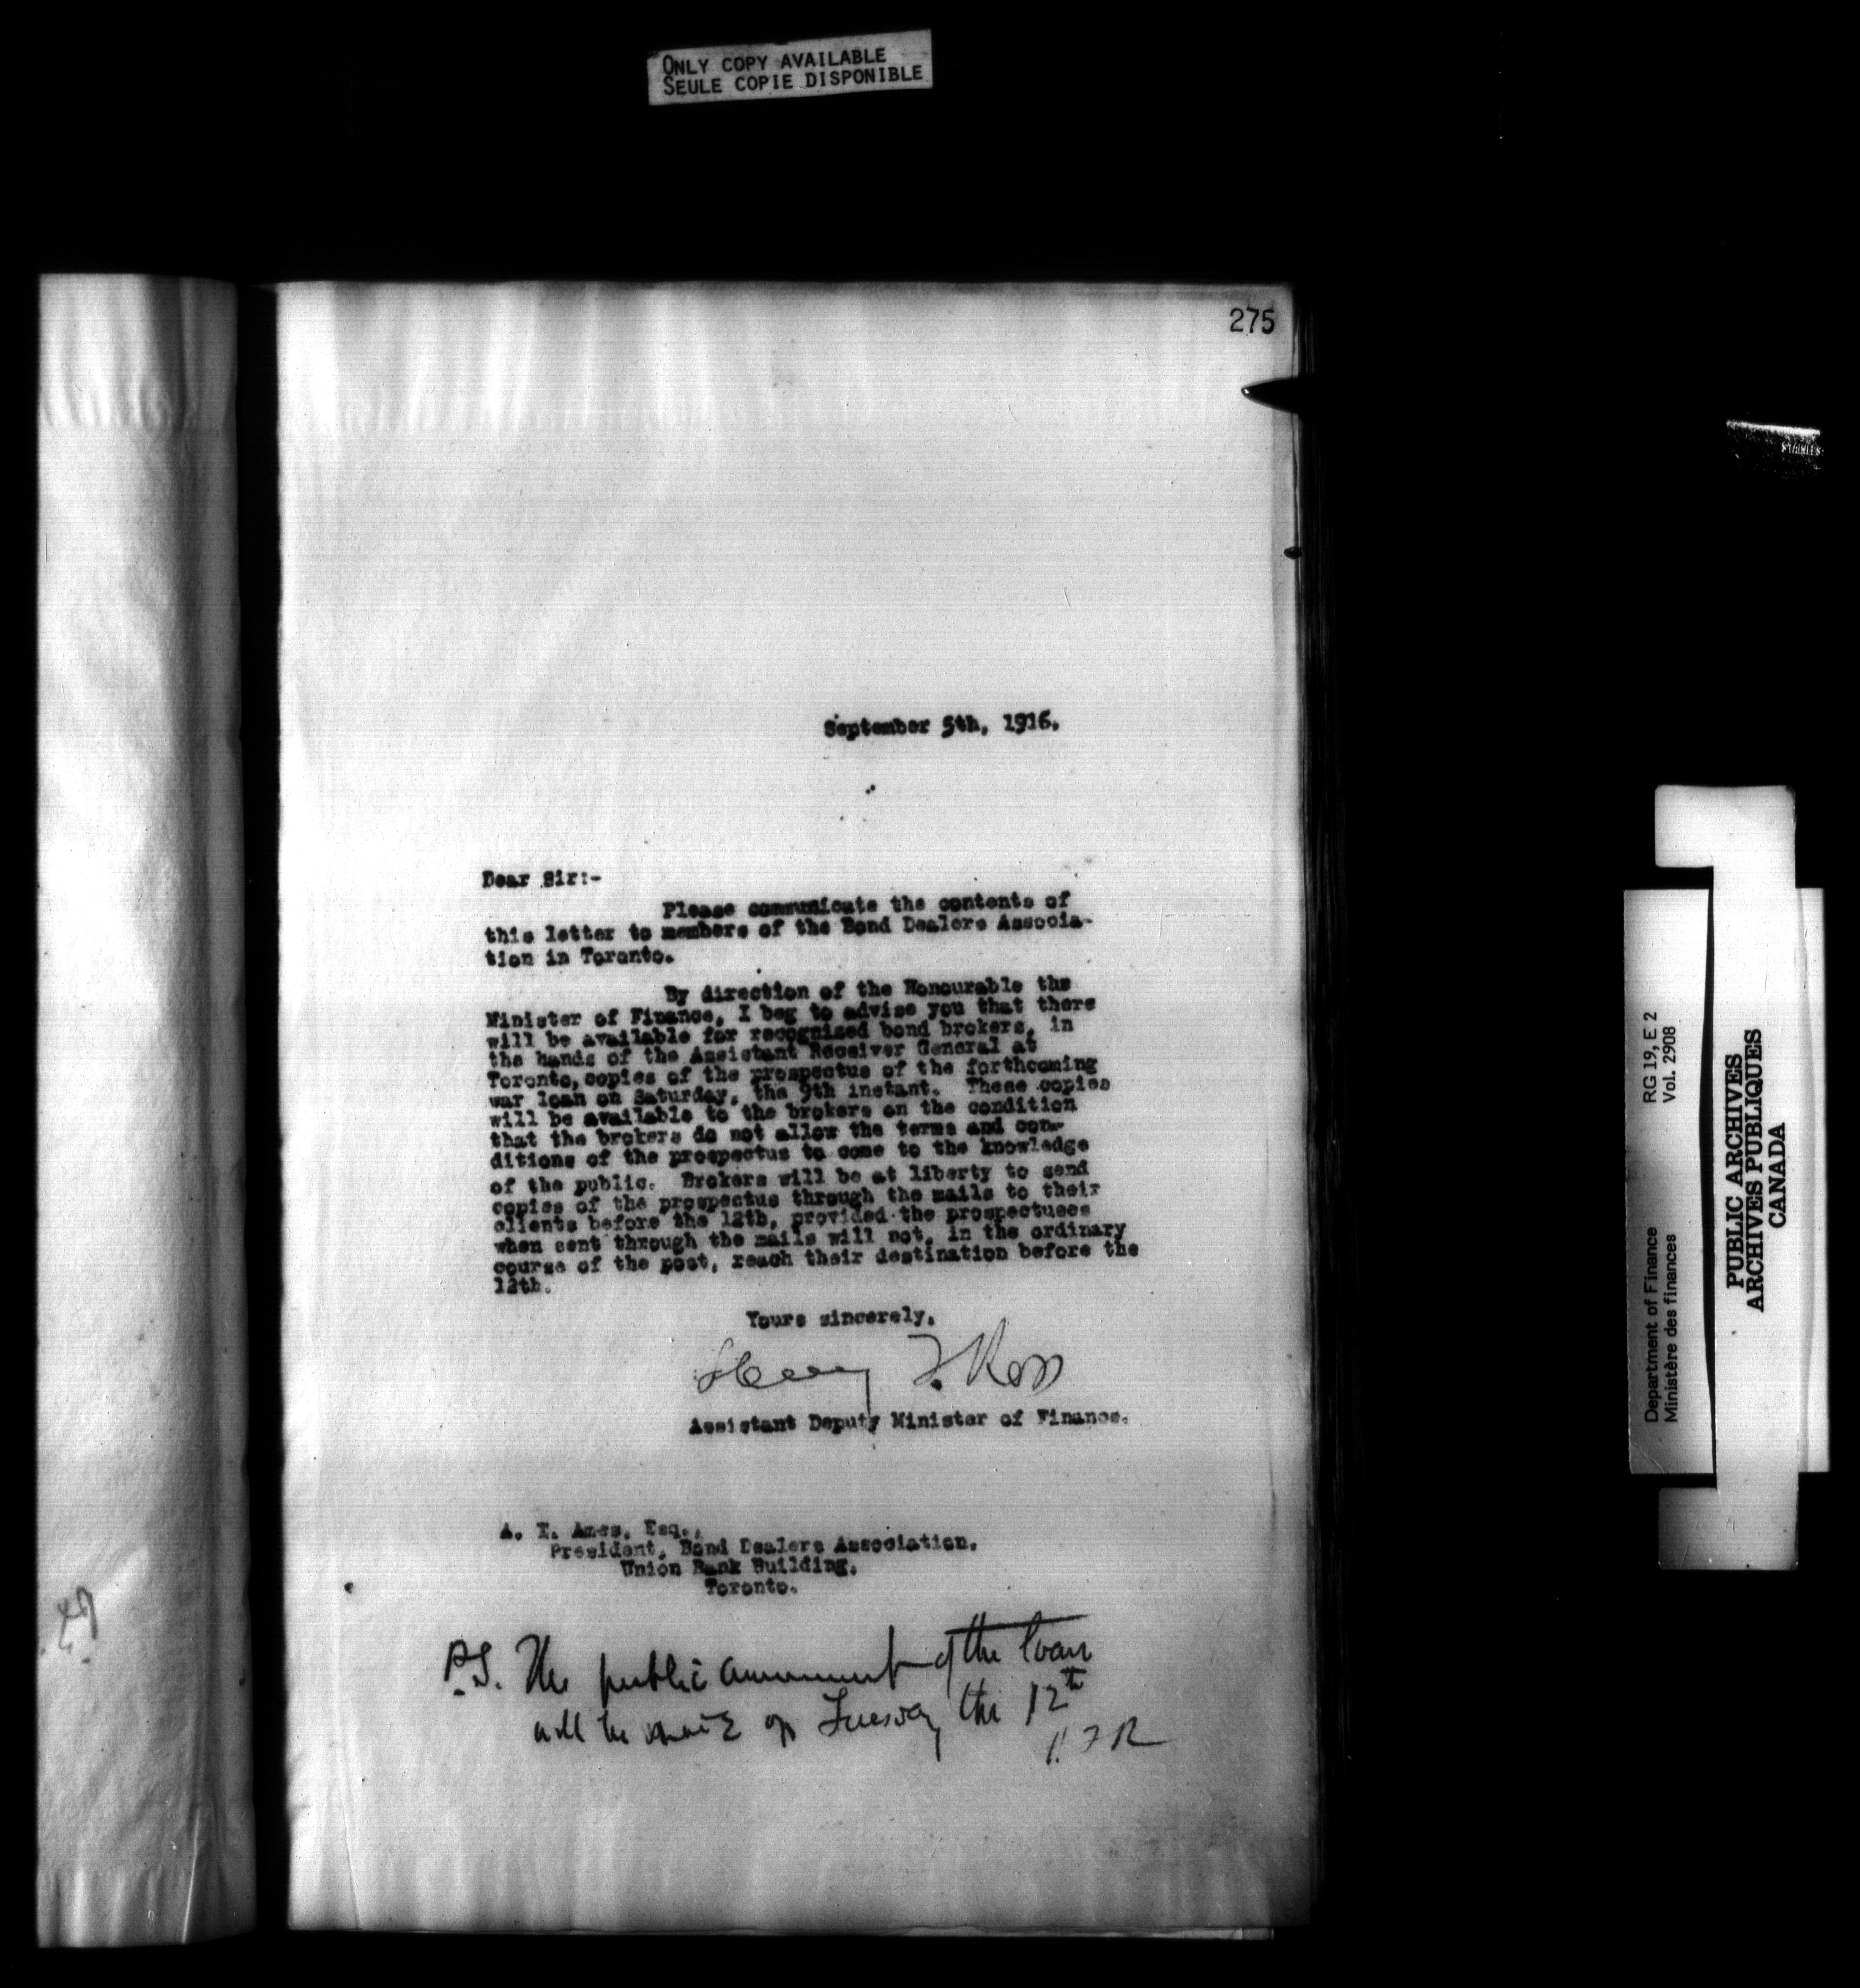 ONLY COPY AVAILABLE
SEULE COPIE DISPONIBLE
275
September 5th, 1916.
Dear Sir:-
Please communicate the contents of
this letter to members of the Bond Dealers Associa-
tion in Toronto.
By direction of the Honourable the
Minister of Finance, I beg to advise you that there
will be available for recognized bond brokers, in
the hands of the Assistant Receiver General at
Toronto, copies of the prospectus of the forthcoming
war loan on Saturday, the 9th instant. These copies
will be available to the brokers on the condition
that the brokers do not allow the terms and con-
ditions of the prospectus to come to the knowledge
of the public. Brokers will be at liberty to send
copies of the prospectus through the mails to their
clients before the 12th, provided the prospectuses
when sent through the mails will not, in the ordinary
course of the post, reach their destination before the
12th.
Yours sincerely,
Henry T. Ross
Assistant Deputy Minister of Finance.
A. E. Ames, Esq.,
President, Bond Dealers Association,
Union Bank Building,
Toronto.
P.S. The public announcement of the loan
will be made on Tuesday the 12th
Department of Finance RG 19, E 2
Ministère des finances Vol. 2908
PUBLIC ARCHIVES
ARCHIVES PUBLIQUES
CANADA